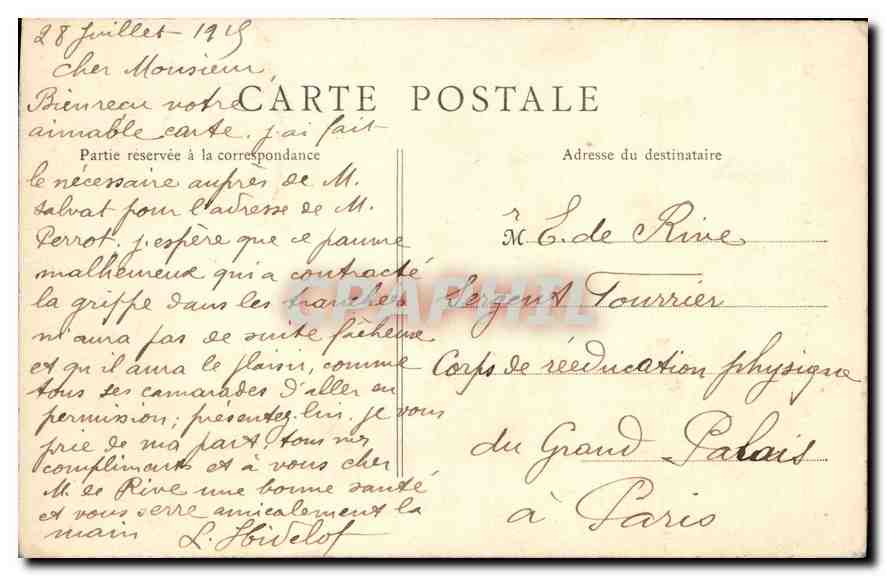 28 Juillet 1915
Cher Monsieur,
Bien reçu votre
aimable carte. j'ai fait
le nécessaire auprès de M.
Salvat pour l'adresse de M.
Perrot. j'espère que ce pauvre
malheureux qui a contracté
la grippe dans les tranchées
n'aura pas de suite fâcheuse
et qu'il aura le plaisir, comme
tous ses camarades d'aller en
permission; présentez lui. je vous
prie de ma part. tous mes
compliments et à vous cher
M. de Rive une bonne santé
et vous serre amicalement la
main L.
CARTE POSTALE
Partie réservée à la correspondance
Adresse du destinataire
Mr E. de Rive
Sergent Fourrier
Corps de rééducation physique
du Grand Palais
à Paris
CPAPHIL